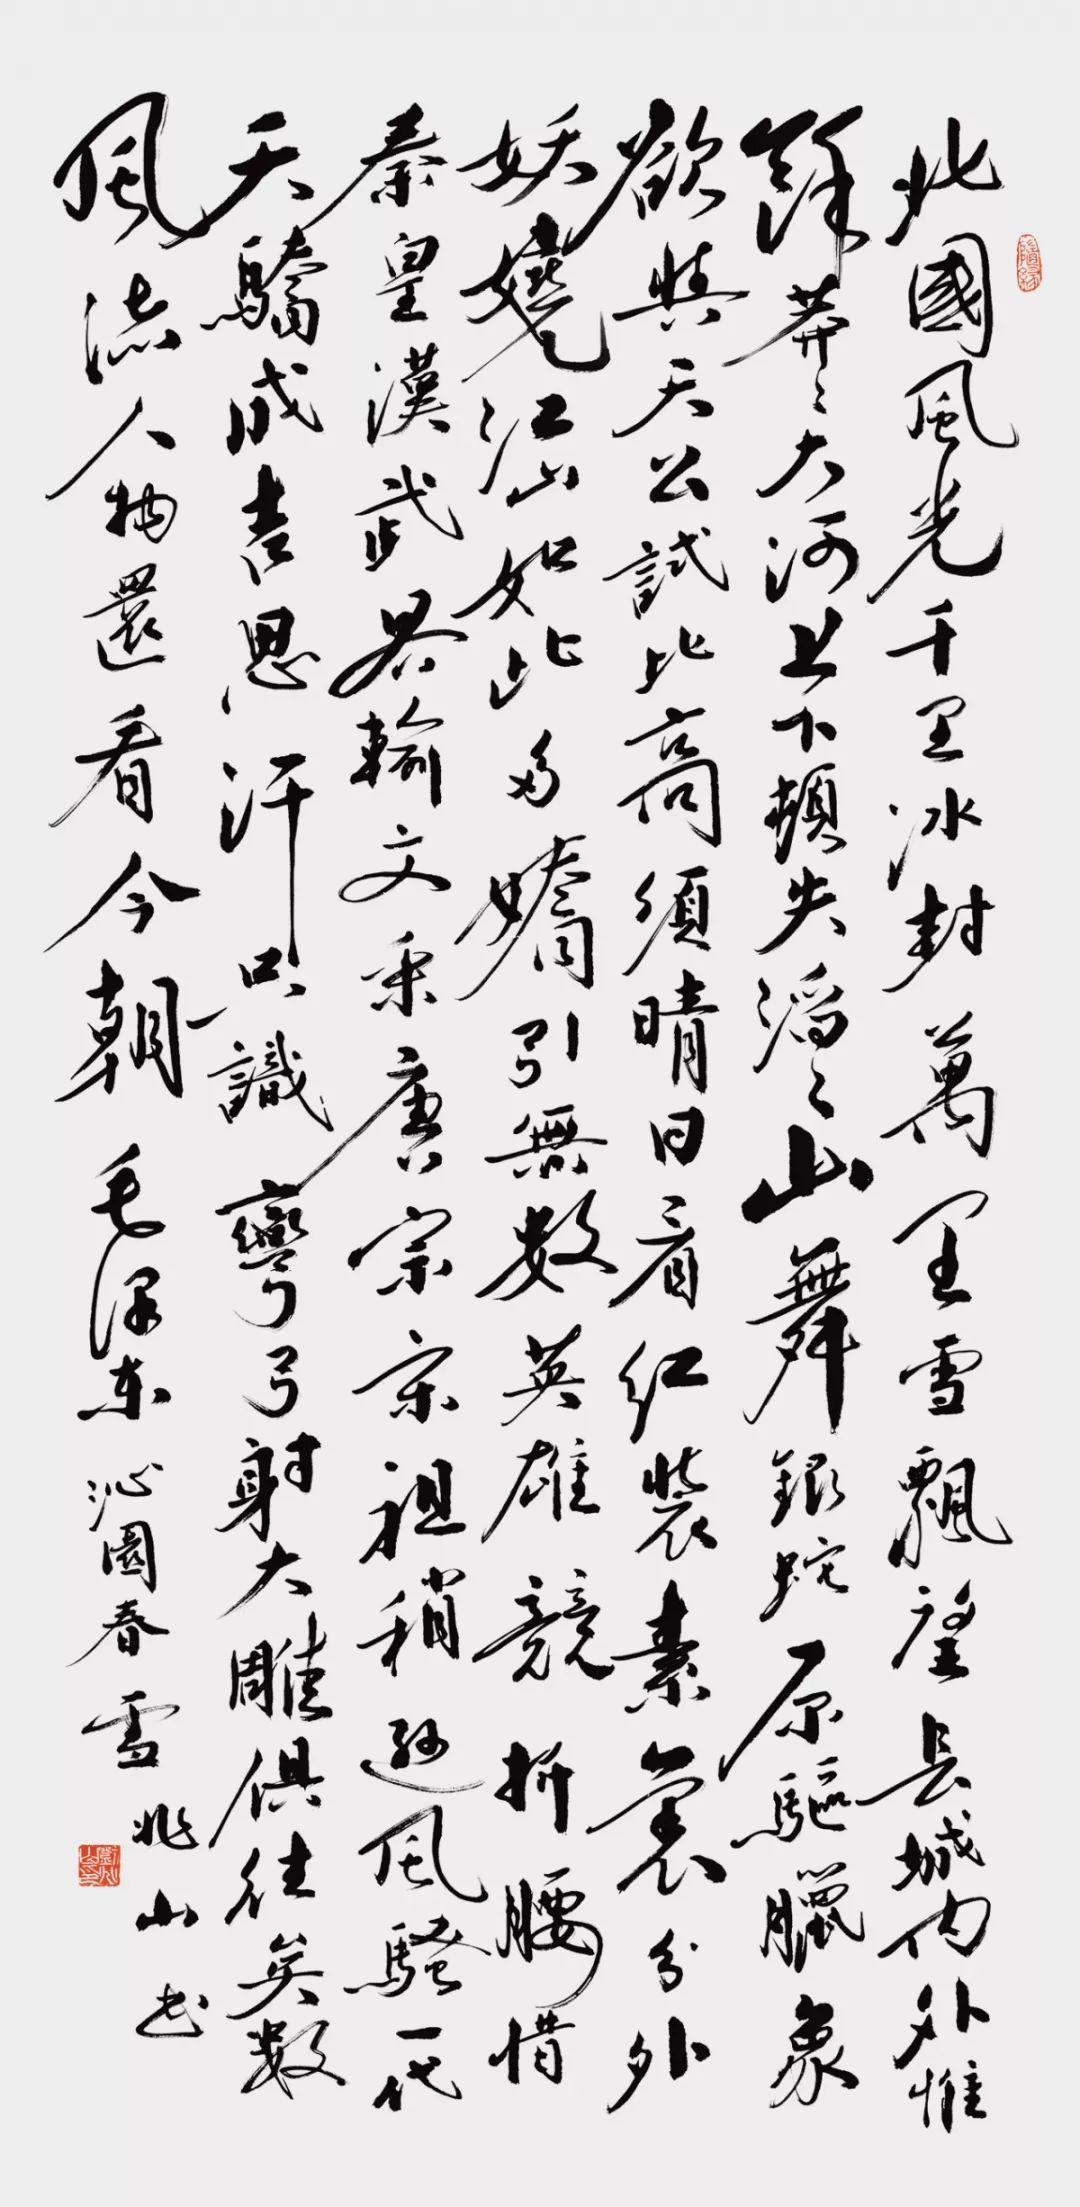 北國風光千里冰封萬里雪飄望長城內外惟
餘莽々大河上下頓失滔々山舞銀蛇原驅臘象
欲與天公試比高須晴日看紅裝素裹分外
妖嬈江山如此多嬌引無數英雄競折腰惜
秦皇漢武畧輸文采唐宗宋祖稍遜風騷一代
天驕成吉思汗只識彎弓射大雕俱往矣數
風流人物還看今朝 毛澤東沁園春雪
兆山书